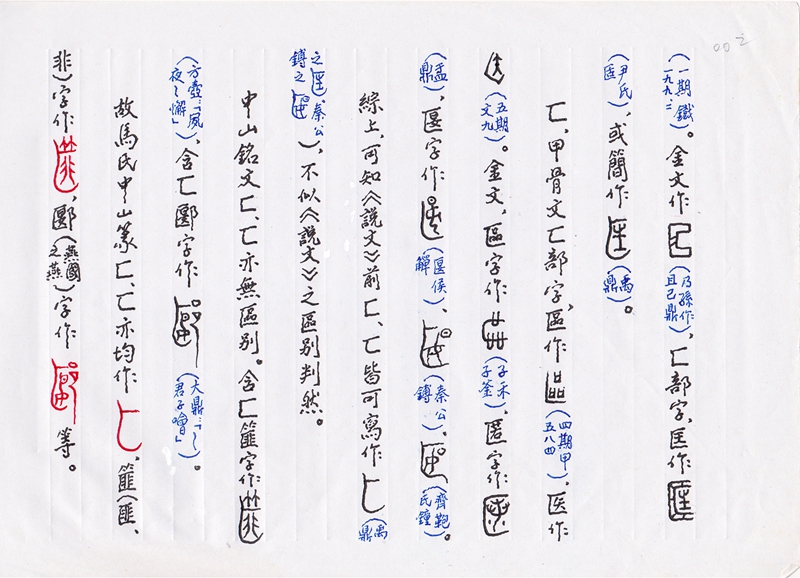 002
（一期鐵一九九·三）。金文作（乃孫作且己鼎），匚部字，匡作
（尹氏匡），或簡作（禹鼎）。
匸，甲骨文匸部字，區作（四期甲五八四），医作
（五期文九）。金文，區字作（子禾子釜），匿字作
（盂鼎），匽字作（匽侯觶）、（秦公鎛）、（齊鞄氏鐘）。
綜上，可知《說文》前匚、匸皆可寫作（禹鼎
之匡、秦公鎛之），不似《說文》之區別判然。
中山銘文匚、匸亦無區别。含匚篚字作
（方壺：「夙夜篚懈」），含匸郾字作（大鼎：「郾君子噲」）。
故馬氏中山篆匚、匸亦均作，篚（匪、
非）字作，郾（燕國之燕）字作等。